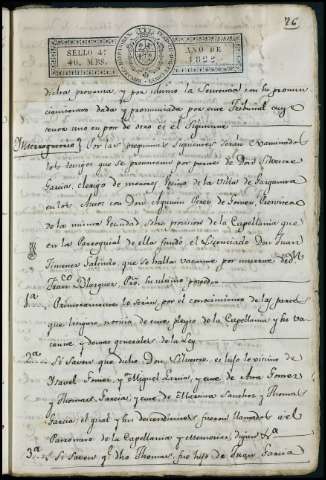 76
SELLO 4º
40. MRS.
AÑO DE
1822
dichas provanza y por ultimo la Sentencia con los pronun
ciamientos dada y pronunciada por este Tribunal cuyo
tenor uno en pos de otro es el Siguiente
Interrogatorio Por las preguntas Siguientes serán examinados
los testigos que se presentaren por parte de Don Silvestre
Garcia, clerigo de menores, Vecino de la Villa de
en los Autos con Don Perez de Gomez
de la misma Vecindad sobre posesion de la Capellania que
en la Parroquial de ella fundó el Licenciado Don Juan
Ximenez que se halla vacante por muerte de Dn
Franco Pro. su ultimo posehedor
1ª Primeramente lo serán por el conocimiento de las partes
que litigan, noticia de este pleyto de la Capellania y su va
cante, y demas generales de la Ley
2ª Si Saven que dicho Don Silvestre, es hijo legitimo de
Ysavel Gomez, y Miguel Garcia, y este de Ana Gomez
y Thomas Garcia, y este de Sanchez y Thomas
Garcia, el qual y sus descendientes fueron llamados a el
Patronato de la Capellania, y memorias, digan &ª
3ª Si Saven qe dho Thomas, fue hijo de Juan Garcia